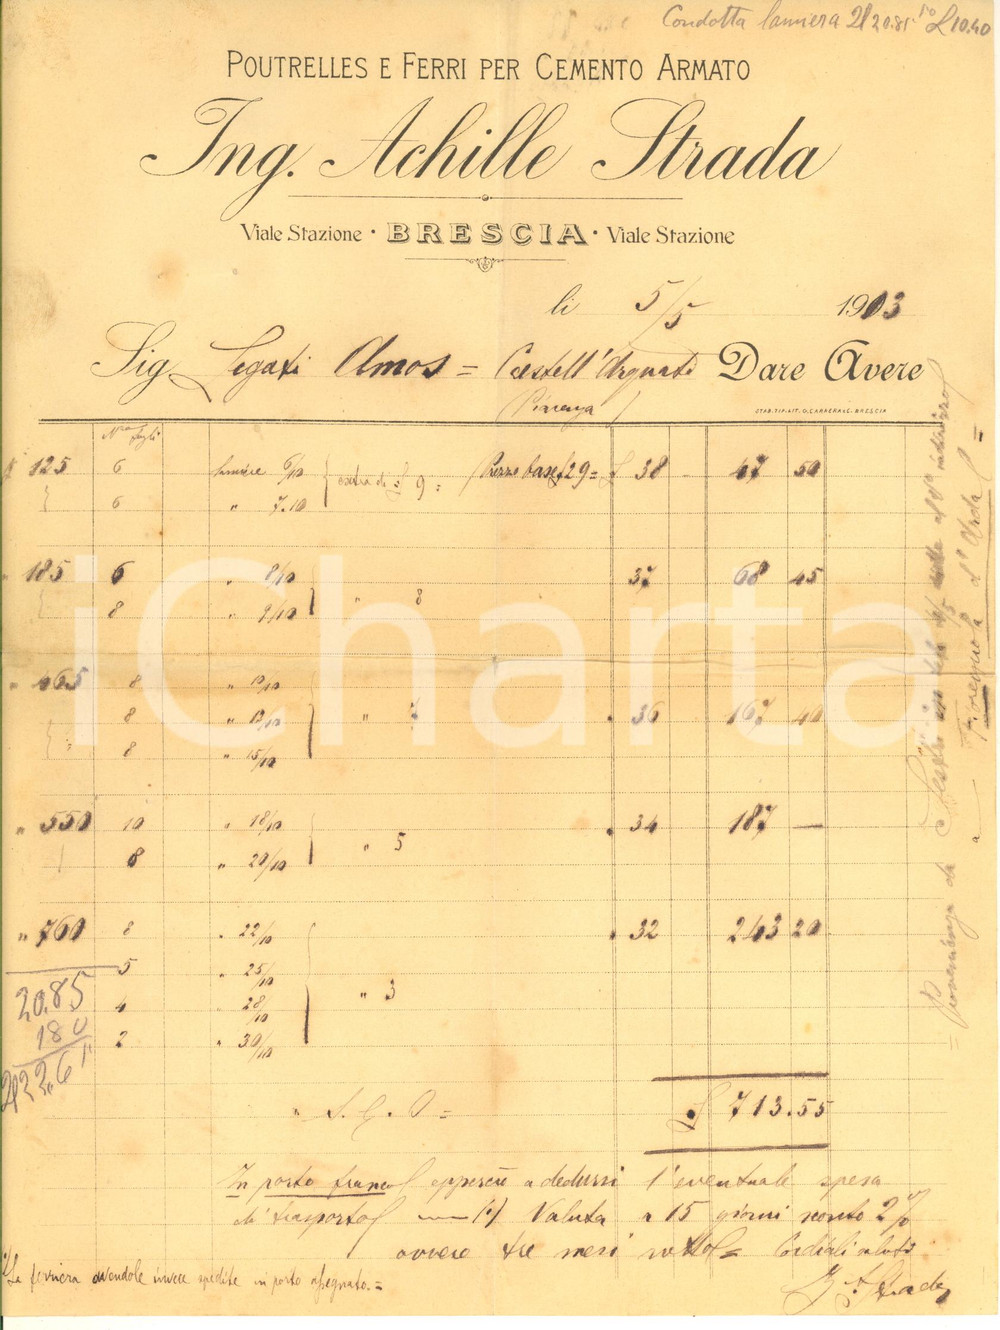 Condotta lamiera 2120.85 £ 10.40
POUTRELLES E FERRI PER CEMENTO ARMATO
Ing. Achille Strada
Viale Stazione · BRESCIA · Viale Stazione
li 5/5 1903
Sig. Segati Amos = Castell'Arquato Dare Avere
Piacenza
STAB. TIP. LIT. G. CARRERA & C. BRESCIA
N.ro fogli
125 6 lamiere 6/10 extra di £ 9 = Prezzo base £ 29 = £ 38 47 50
6 " 7.10
185 6 " 8/10 " 8 37 68 45
8 " 9/10
" 465 8 " 10/10
8 " 12/10 " 7 " 36 167 40
8 " 15/10
" 550 10 " 18/10 " 5 " 34 187 —
8 " 20/10
" 760 8 " 22/10 " 32 243 20
5 " 25/10
20.85 4 " 28/10 " 3
180 2 " 30/10
" S. E. O = £ 713.55
In porto franco oppure a dedursi l'eventuale spesa
di trasporto Valuta a 15 giorni sconto 2%
ovvero tre mesi netto = Cordiali saluti
La ferriera avendole invece spedite in porto assegnato. =
A Strada
= Provenienza da Sestri
a Fiorenzuola d'Arda =
iCharta